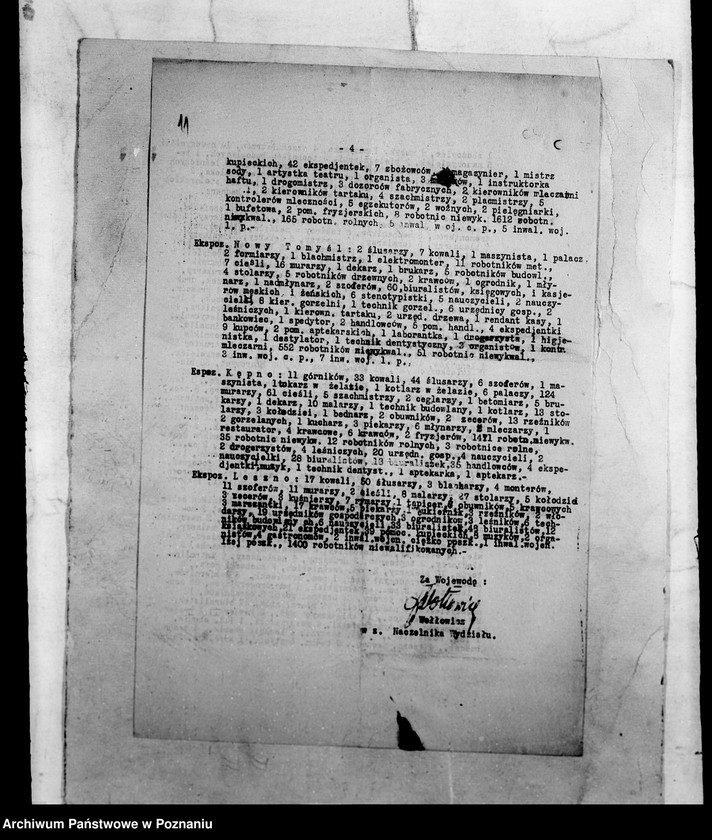 11
- 4 -
C
kupieckich, 42 ekspedjentek, 7 zbożowców, magazynier, 1 mistrz
sody, 1 artystka teatru, 1 organista, 3 1 instruktorka
haftu, 1 drogomistrz, 3 dozorców fabrycznych, 2 kierowników mleczarni
2 kierowników tartaku, 4 szachmistrzy, 2 placmistrzy, 5
kontrolerów mleczności, 5 egzekutorów, 2 woźnych, 2 pielęgniarki,
1 bufetowa, 2 pom. fryzjerskich, 8 robotnic niewyk. 1612 robotn.
niewykwal., 165 robotn. rolnych, 5 inwal. woj. c. p., 5 inwal. woj.
l. p.-
Ekspoz. N o w y T o m y ś l : 2 ślusarzy, 7 kowali, 1 maszynista, 1 palacz,
2 formiarzy, 1 blachmistrz, 1 elektromonter, 11 robotników met.,
7 cieśli, 16 murarzy, 1 dekarz, 1 brukarz, 5 robotników budowl.,
4 stolarzy, 5 robotników drzewnych, 2 krawców, 1 ogrodnik, 1 mły-
narz, 1 nadmłynarz, 2 szoferów, 60 biuralistów, księgowych, i kasje-
rów męskich, i żeńskich, 6 stenotypistki, 5 nauczycieli, 2 nauczy-
cielki, 8 kier. gorzelni, 1 technik gorzel., 6 urzędnicy gosp., 2
leśniczych, 1 kierown. tartaku, 2 urzęd. drzewa, 1 rendant kasy, 1
bankowiec, 1 spedytor, 2 handlowców, 5 pom. handl., 4 ekspedjentki
9 kupców, 2 pom. aptekarskich, 1 laborantka, 1 drogerzysta, 1 higje-
nistka, 1 destylator, 1 technik dentystyczny, 3 organistów, 1 kontr.
mleczarni, 552 robotników niewykwal., 51 robotnic niewykwal.,
3 inw. woj. c. p., 7 inw. woj. l. p.,
Espoz. K ę p n o : 11 górników, 33 kowali, 44 ślusarzy, 6 szoferów, 1 ma-
szynista, 1 tokarz w żelazie, 1 kotlarz w żelazie, 6 palaczy, 124
murarzy, 61 cieśli, 5 szachmistrzy, 2 ceglarzy, 1 betoniarz, 5 bru-
karzy, 1 dekarz, 10 malarzy, 1 technik budowlany, 1 kotlarz, 13 sto-
larzy, 3 kołodziei, 1 bednarz, 2 obuwników, 2 zecerów, 13 rzeźników
2 gorzelanych, 1 kucharz, 3 piekarzy, 6 młynarzy, 2 mleczarzy, 1
restaurator, 4 krawcowe, 6 krawców, 2 fryzjerów, 1471 robotn.niewykw.
35 robotnic niewykw. 12 robotników rolnych, 3 robotnice rolne,
2 drogerzystów, 4 leśniczych, 20 urzędn. gosp., 4 nauczycieli, 2
nauczycielki, 28 biuralistów, 13 biuralistek, 35 handlowców, 4 ekspe-
djentki, muzyk, 1 technik dentyst., 1 aptekarka, 1 aptekarz.-
Ekspoz. L e s z n o : 17 kowali, 50 ślusarzy, 3 blacharzy, 4 monterów,
11 szoferów, 11 murarzy, 2 cieśli, 8 malarzy, 27 stolarzy, 5 kołodziei
3 zecerów, 3 kuśnierzy, 7 rymarzy, 1 tapicer, 6 obuwników, 5 krawcowych
17 krawców, 5 piekarzy, 1 cukiernik, 3 rzeźników, 2 wło-
darzy, 19 urzędników gospodarczych, 3 ogrodników, 3 leśników, 6 tech-
ników budowlanych, 6 nauczycieli, 33 biuralistek, 48 biuralistów, 12
21 ekspedjentek, 8 pomoc. kupieckich, 8 muzyków, 2 orga-
nistów, 4 gastronomów, 2 inwal.wojen. ciężko poszk., 1 inwal.wojen.
lżej poszk., 1400 robotników niewalifikowanych.-
Za Wojewodę :
Wołłowicz
w z. Naczelnika Wydziału.
Archiwum Państwowe w Poznaniu